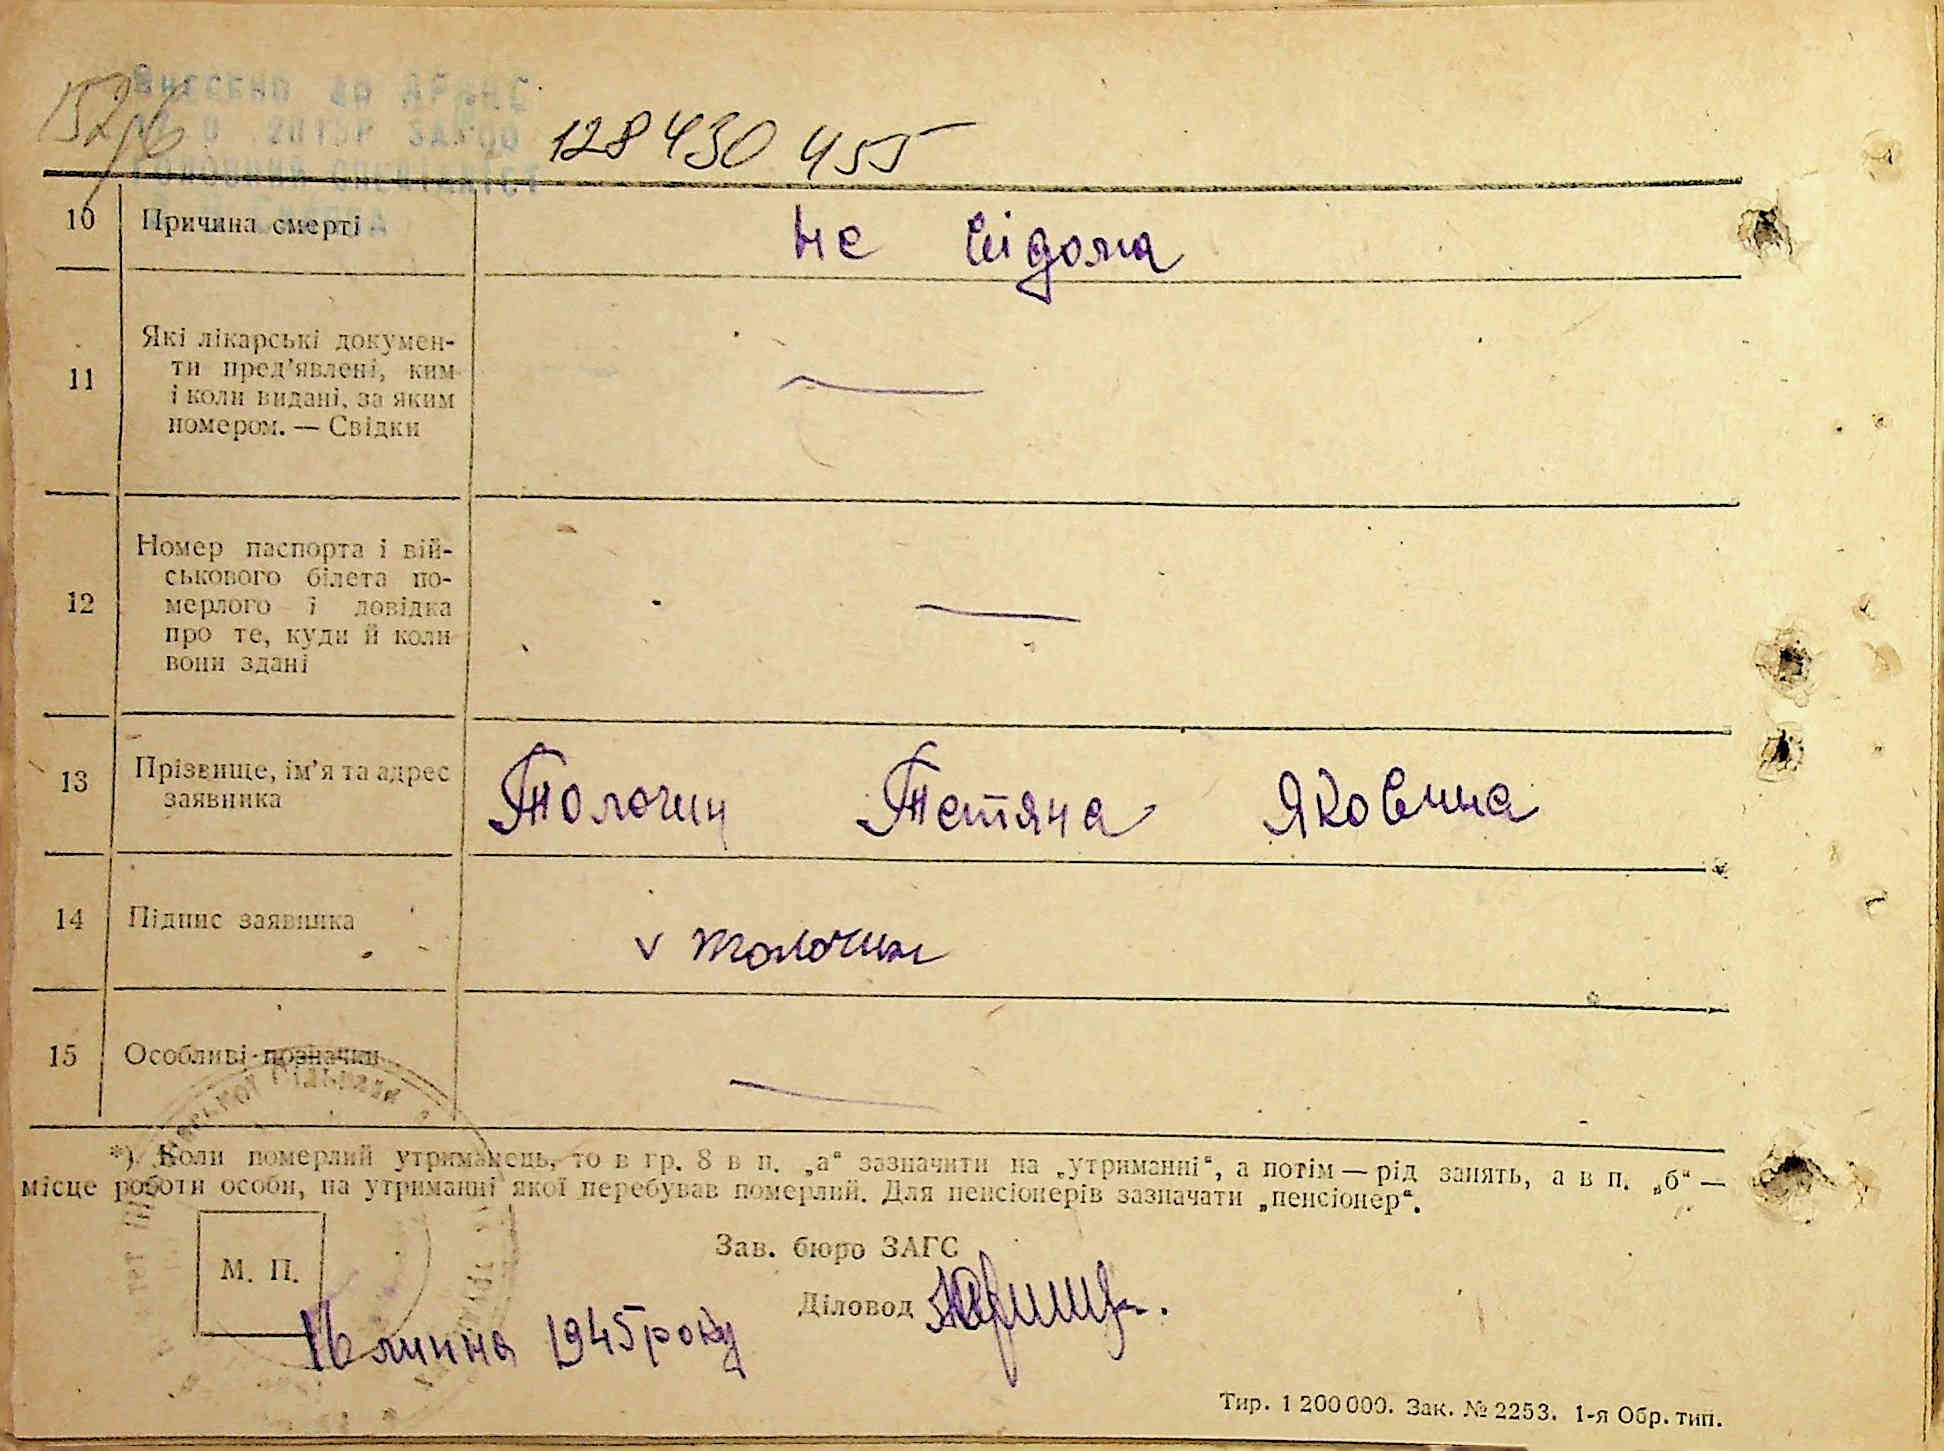 152/б
Внесено до ДРАЦС
128 430 455
10 Причина смерті не відома
11 Які лікарські докумен-
ти пред'явлені, ким
і коли видані, за яким
номером. — Свідки
12 Номер паспорта і вій-
ськового білета по-
мерлого і довідка
про те, куди й коли
вони здані
13 Прізвище, ім'я та адрес
заявника
Толочин Тетяна Яковлина
14 Підпис заявника v толочин
15 Особливі позначки
*) Коли померлий утриманець, то в гр. 8 в п. „а“ зазначити на „утриманні“, а потім — рід занять, а в п. „б“ —
місце роботи особи, на утриманні якої перебував померлий. Для пенсіонерів зазначати „пенсіонер“.
Зав. бюро ЗАГС
М. П.
Діловод
16 липня 1945 року
Тир. 1 200 000. Зак. № 2253. 1-я Обр. тип.